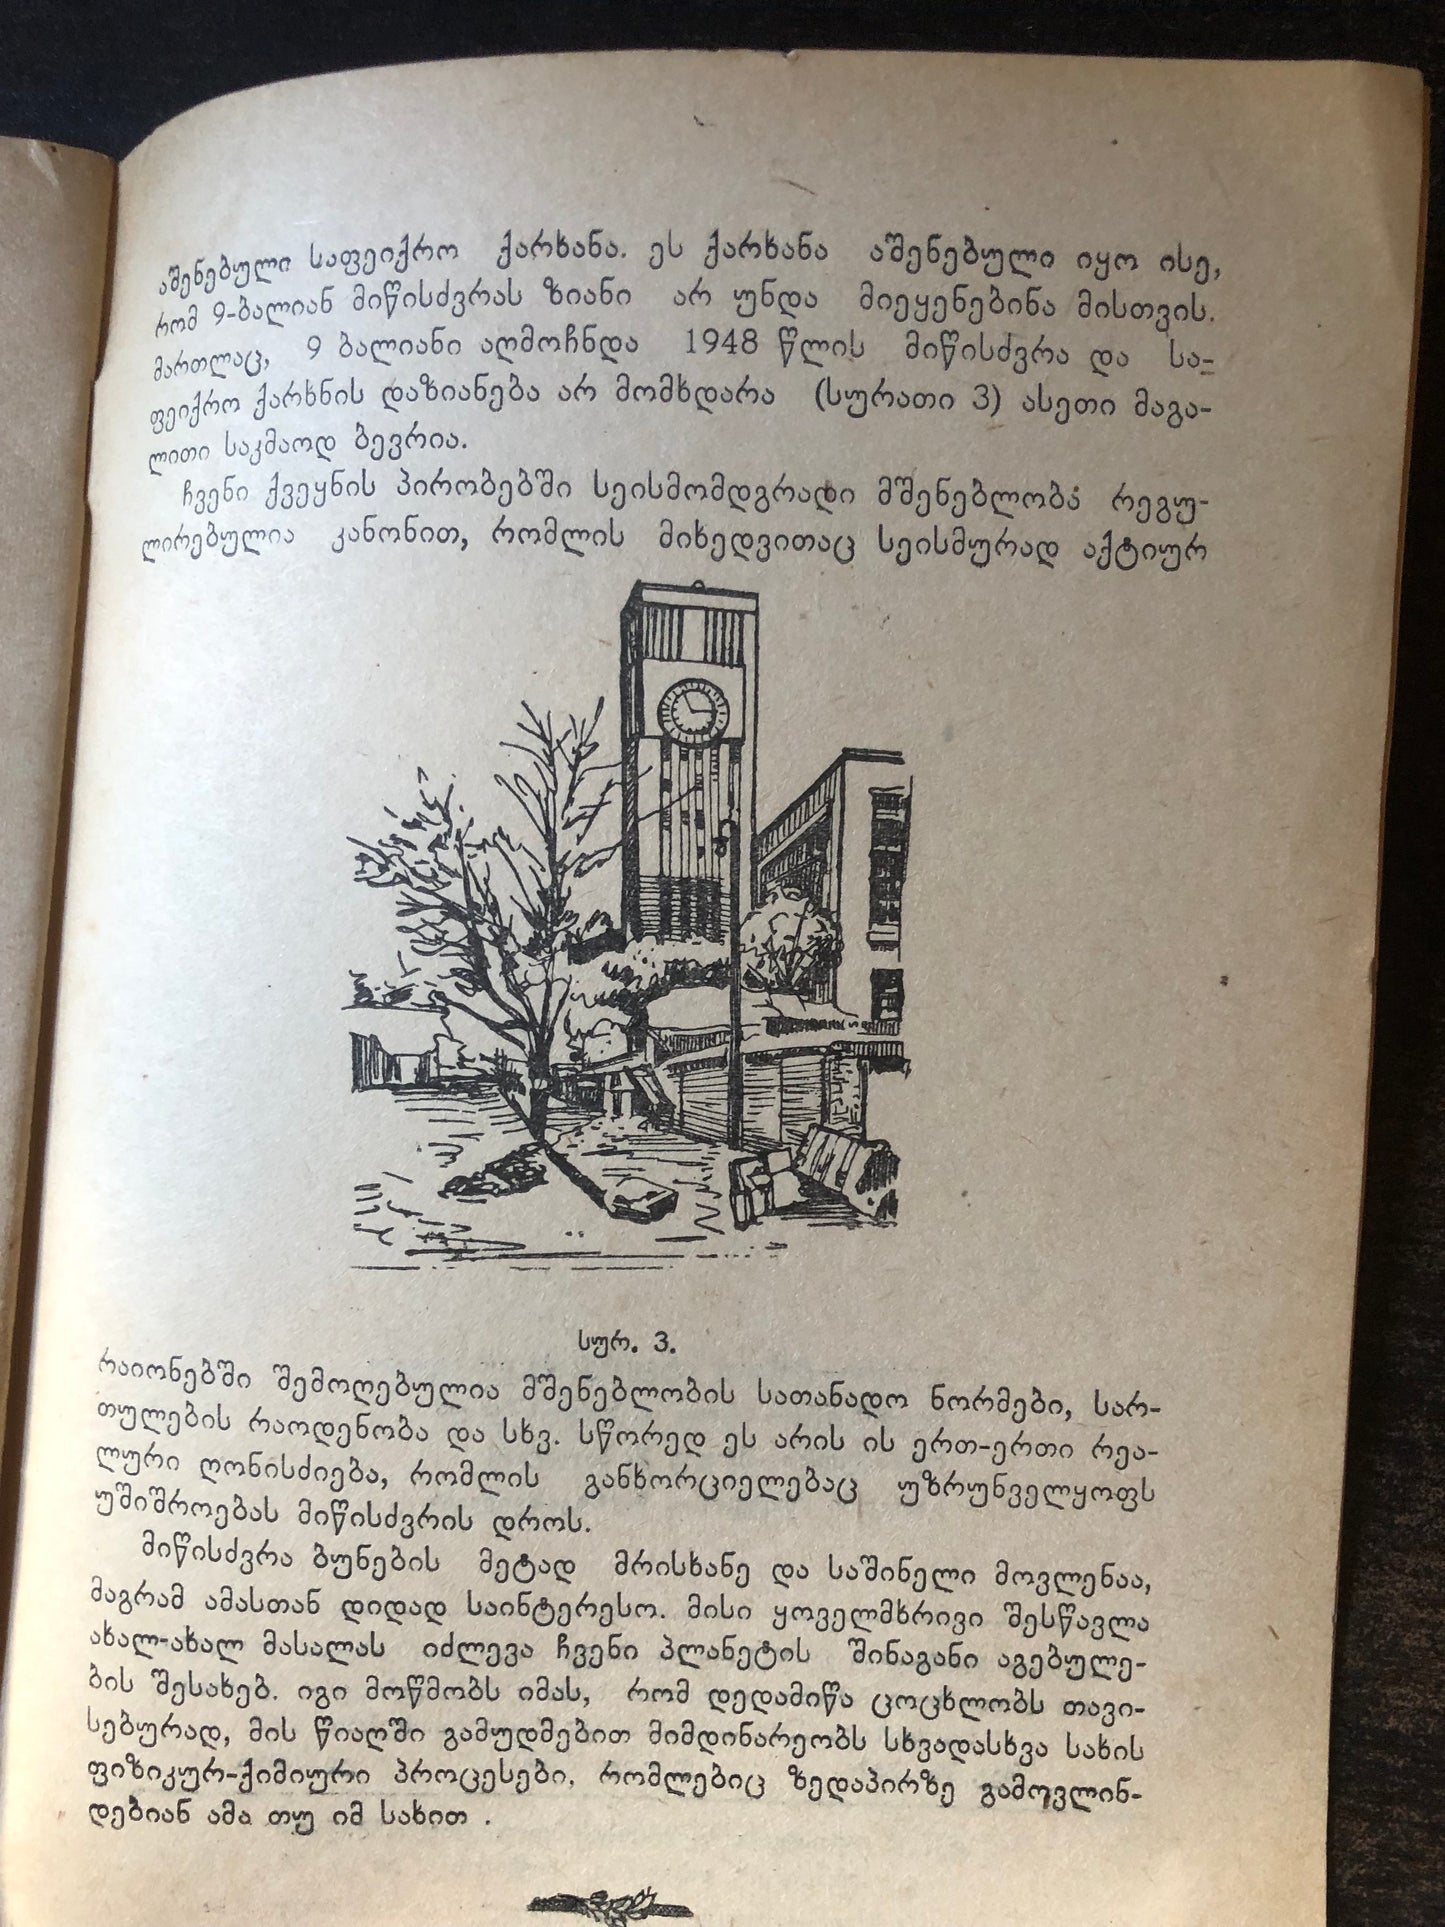 აშენებული საფეიქრო ქარხანა. ეს ქარხანა აშენებული იყო ისე,
რომ 9-ბალიან მიწისძვრას ზიანი არ უნდა მიეყენებინა მისთვის.
მართლაც, 9 ბალიანი აღმოჩნდა 1948 წლის მიწისძვრა და სა-
ფეიქრო ქარხნის დაზიანება არ მომხდარა (სურათი 3) ასეთი მაგა-
ლითი საკმაოდ ბევრია.
ჩვენი ქვეყნის პირობებში სეისმომდგრადი მშენებლობა რეგუ-
ლირებულია კანონით, რომლის მიხედვითაც სეისმურად აქტიურ
სურ. 3.
რაიონებში შემოღებულია მშენებლობის სათანადო ნორმები, სარ-
თულების რაოდენობა და სხვ. სწორედ ეს არის ის ერთ-ერთი რეა-
ლური ღონისძიება, რომლის განხორციელებაც უზრუნველყოფს
უშიშროებას მიწისძვრის დროს.
მიწისძვრა ბუნების მეტად მრისხანე და საშინელი მოვლენაა,
მაგრამ ამასთან დიდად საინტერესო. მისი ყოველმხრივი შესწავლა
ახალ-ახალ მასალას იძლევა ჩვენი პლანეტის შინაგანი აგებულე-
ბის შესახებ. იგი მოწმობს იმას, რომ დედამიწა ცოცხლობს თავი-
სებურად, მის წიაღში გამუდმებით მიმდინარეობს სხვადასხვა სახის
ფიზიკურ-ქიმიური პროცესები, რომლებიც ზედაპირზე გამოვლინ-
დებიან ამა თუ იმ სახით .